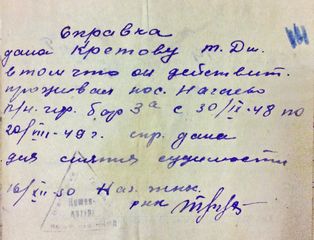 Справка
дана Кретову т. Дм.
в том что он действит.
проживал пос. Нагаево
р/н. гор. бар 3а с 30/IX-48 по
20/VIII-49 г. спр. дана
для снятия судимости
16/XII-50 Наг.